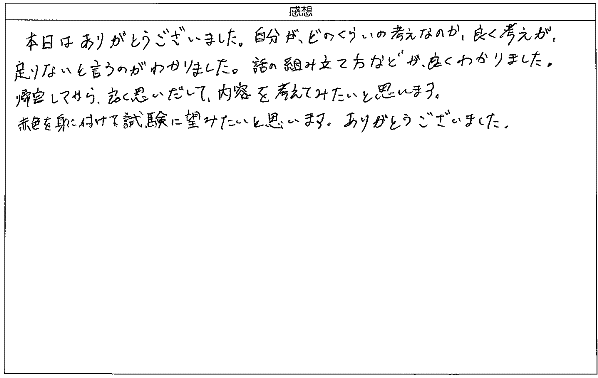 感想
本日はありがとうございました。自分が、どのくらいの考えなのか、良く考えが、
足りないと言うのがわかりました。話の組み立て方などが、良くわかりました。
帰宅してから、良く思いだして、内容を考えてみたいと思います。
赤色を身に付けて試験に望みたいと思います。ありがとうございました。